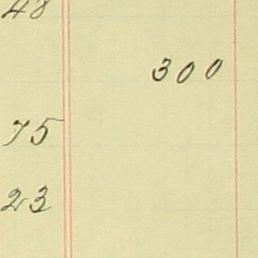 48
300
75
23